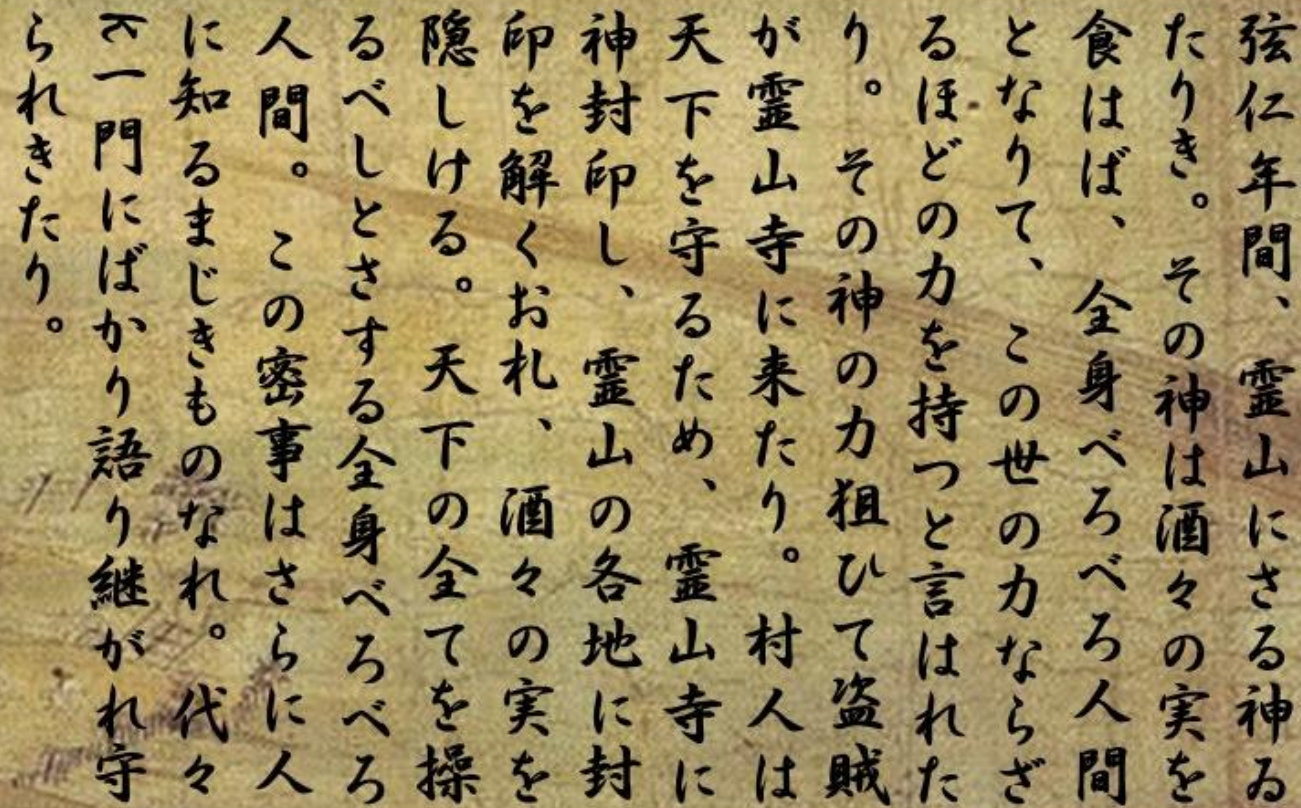 弦仁年間、霊山にさる神ゐ
たりき。その神は酒々の実を
食はば、全身べろべろ人間
となりて、この世の力ならざ
るほどの力を持つと言はれた
り。その神の力狙ひて盗賊
が霊山寺に来たり。村人は
天下を守るため、霊山寺に
神封印し、霊山の各地に封
印を解くお札、酒々の実を
隠しける。天下の全てを操
るべしとさする全身べろべろ
人間。この密事はさらに人
に知るまじきものなれ。代々
K一門にばかり語り継がれ守
られきたり。